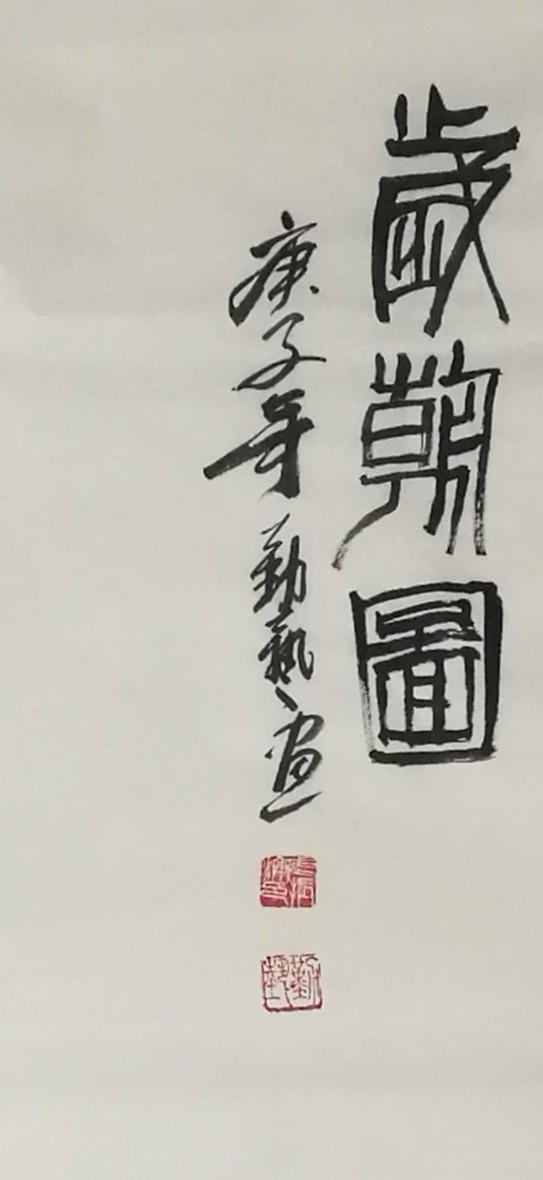 歲朝圖
庚子年勤藝畫